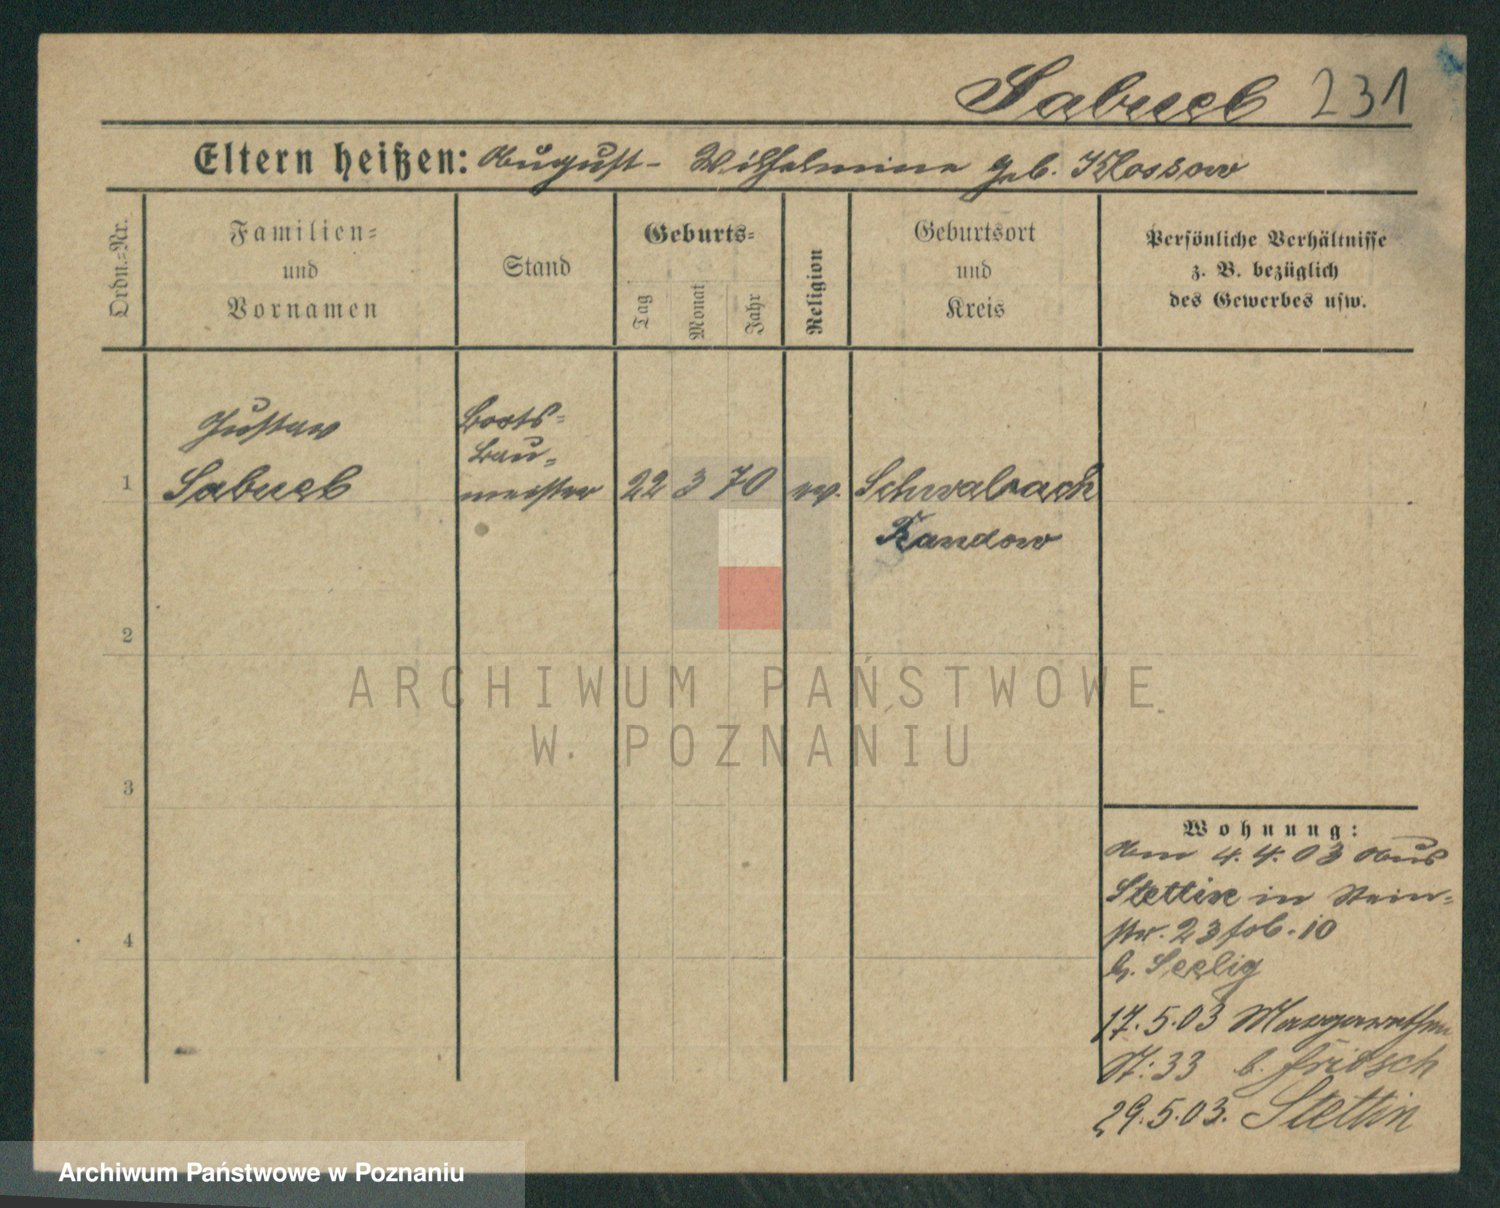 Sabueb 231
Eltern heißen: August - Wilhelmine geb. Klossow
Ordn.-Nr.
Familien-
und
Vornamen
Stand
Geburts-
Tag
Monat
Jahr
Religion
Geburtsort
und
Kreis
Persönliche Verhältnisse
z. B. bezüglich
des Gewerbes usw.
1
Gustav
Sabueb
Boots-
bau-
meister
22 3 70
ev.
Schwabach
Randow
2
3
4
Wohnung:
Am 4.4.03 aus
Stettin in Stein-
str. 23
b. Seelig
17.5.03 Margarethen
33 b. Fritsch
29.5.03. Stettin
ARCHIWUM PAŃSTWOWE
W POZNANIU
Archiwum Państwowe w Poznaniu